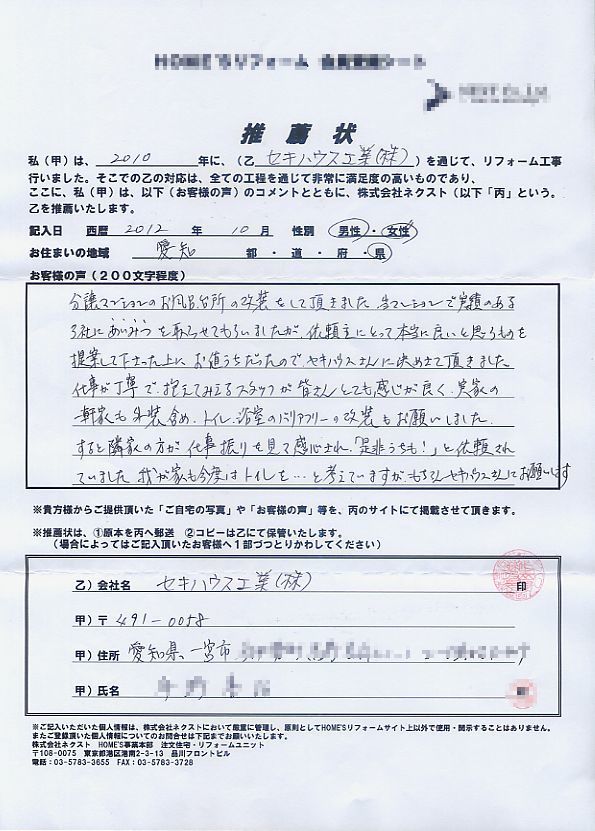 HOME'Sリフォーム
推薦状
私(甲)は、2010年に、(乙 セキハウス工業(株))を通じて、リフォーム工事
行いました。そこでの乙の対応は、全ての工程を通じて非常に満足度の高いものであり、
ここに、私(甲)は、以下(お客様の声)のコメントとともに、株式会社ネクスト(以下「丙」という。
乙を推薦いたします。
記入日 西暦 2012 年 10 月 性別 男性・女性
お住まいの地域 愛知 都・道・府・県
お客様の声(200文字程度)
分譲マンションのお風呂台所の改装をして頂きました。当マンションで実績のある
3社にあいみつを取らせてもらいましたが、依頼主にとって本当に良いと思うものを
提案して下さった上に、お値うちだったので、セキハウスさんに決めさせて頂きました
仕事が丁寧で抱えてみえるスタッフが皆さんとても感じが良く、実家の
一軒家も外装含め、トイレ、浴室のバリアフリーの改装もお願いしました。
すると隣家の方が仕事振りを見て感心され、「是非うちも!」と依頼され
ていました。我が家も今度はトイレを…と考えていますが、もちろんセキハウスさんにお願いします
※貴方様からご提供頂いた「ご自宅の写真」や「お客様の声」等を、丙のサイトにて掲載させて頂きます。
※推薦状は、①原本を丙へ郵送 ②コピーは乙にて保管いたします。
(場合によってはご記入頂いたお客様へ1部づつとりかわしてください)
乙)会社名 セキハウス工業(株) 印
甲)〒 491-0058
甲)住所 愛知県一宮市
甲)氏名
※ご記入いただいた個人情報は、株式会社ネクストにおいて厳重に管理し、原則としてHOME'Sリフォームサイト上以外で使用・開示することはありません。
またご登録頂いた個人情報についてのお問合せは下記までお願いいたします。
株式会社ネクスト HOME'S事業本部 注文住宅・リフォームユニット
〒108-0075 東京都港区港南2-3-13 品川フロントビル
電話:03-5783-3655 FAX:03-5783-3728